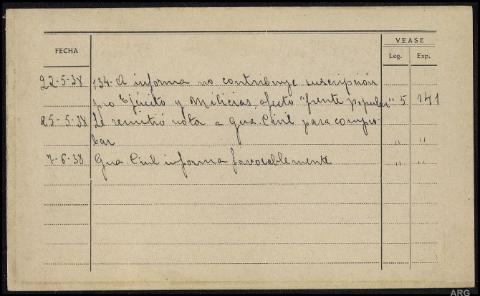 VEASE
FECHA
Leg. Exp.
22-5-38 134-A informa no contribuye suscripción
pro Ejército y Milicias, afecto "frente popular" 5 141
25-5-38 Se remitió nota a Gua. Civil para compro-
bar " "
7-6-38 Gua Civil informa favorablemente " "
ARG